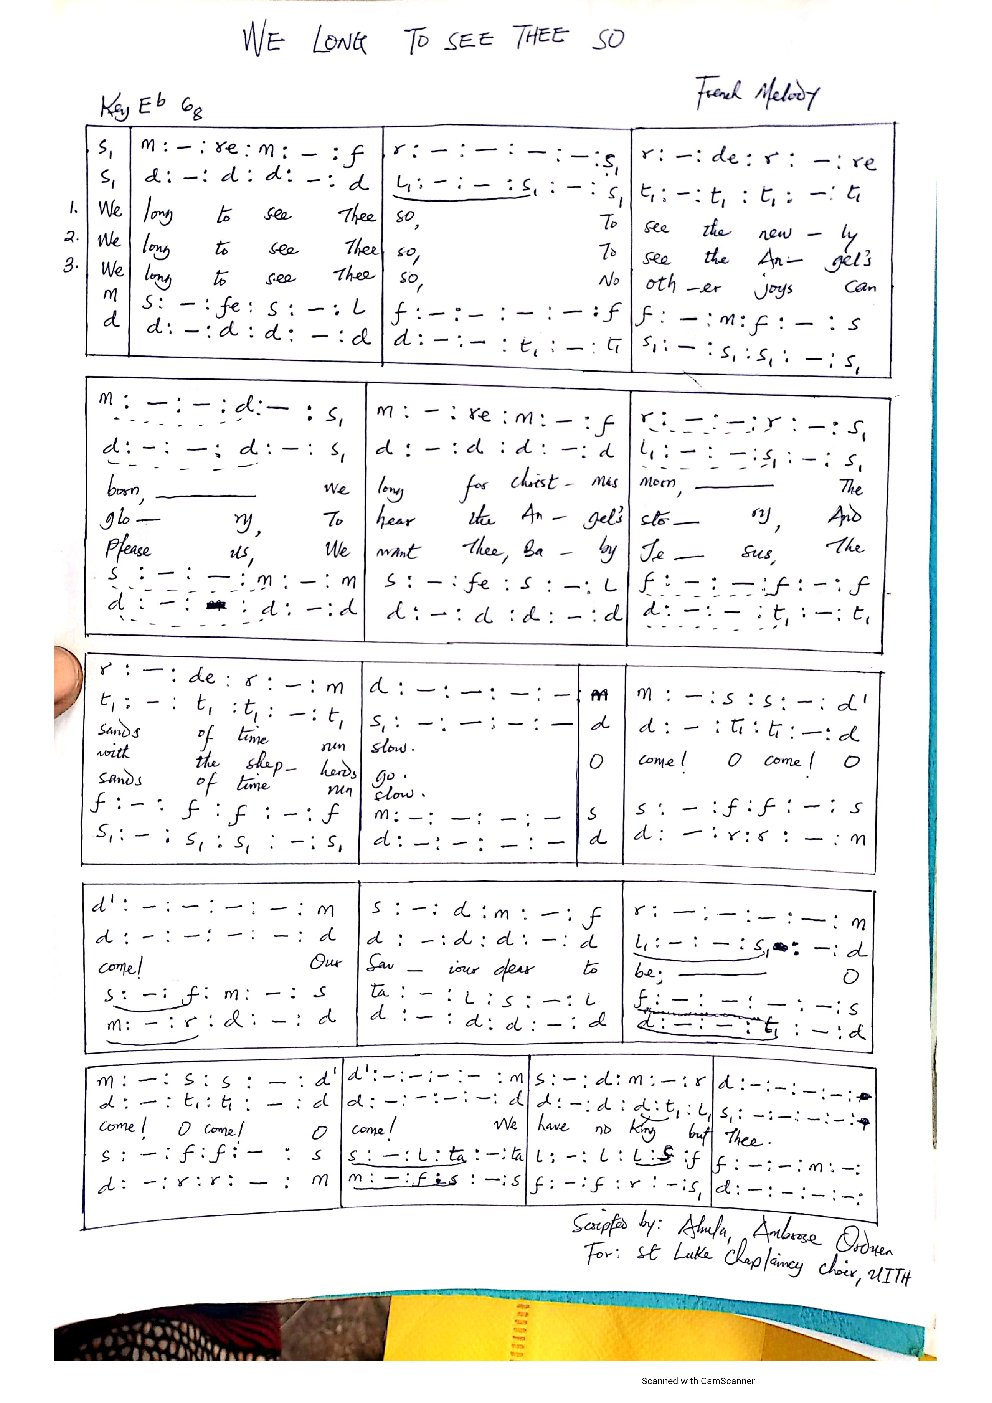 WE LONG TO SEE THEE SO
Key Eb 68
French Melody
s, | m : – : re : m : – : f | r : – : – : – : – : s, | r : – : de : r : – : re
s, | d : – : d : d : – : d | L, : – : – : s, : – : s, | t, : – : t, : t, : – : t,
1. We | long to see Thee | so, To | see the new – ly
2. We | long to see Thee | so, To | see the An – gel's
3. We | long to see Thee | so, No | oth – er joys can
m | s : – : fe : s : – : L | f : – : – : – : – : f | f : – : m : f : – : s
d | d : – : d : d : – : d | d : – : – : t, : – : t, | s, : – : s, : s, : – : s,
m : – : – : d : – : s, | m : – : re : m : – : f | r : – : – : r : – : s,
d : – : – : d : – : s, | d : – : d : d : – : d | L, : – : – : s, : – : s,
born, ——— We | long for christ – mas | morn, ——— The
glo — ry, To | hear the An – gel's | sto — ry, And
Please us, We | want Thee, Ba – by | Je — sus, The
s : – : – : m : – : m | s : – : fe : s : – : L | f : – : – : f : – : f
d : – : : d : – : d | d : – : d : d : – : d | d : – : – : t, : – : t,
r : – : de : r : – : m | d : – : – : – : – | m | m : – : s : s : – : d'
t, : – : t, : t, : – : t, | s, : – : – : – : – | d | d : – : t, : t, : – : d
sands of time run | slow. | O | come! O come! O
with the shep – herds | go.
sands of time run | slow.
f : – : f : f : – : f | m : – : – : – : – | s | s : – : f : f : – : s
s, : – : s, : s, : – : s, | d : – : – : – : – | d | d : – : r : r : – : m
d' : – : – : – : – : m | s : – : d : m : – : f | r : – : – : – : – : m
d : – : – : – : – : d | d : – : d : d : – : d | L, : – : – : s, : – : d
come! Our | Sav – iour dear to | be; ——— O
s : – : f : m : – : s | ta : – : L : s : – : L | f : – : – : – : – : s
m : – : r : d : – : d | d : – : d : d : – : d | d : – : – : t, : – : d
m : – : s : s : – : d' | d' : – : – : – : – : m | s : – : d : m : – : r | d : – : – : – : –
d : – : t, : t, : – : d | d : – : – : – : – : d | d : – : d : d : t, : L, | s, : – : – : – : –
come! O come! O | come! We | have no King but | Thee.
s : – : f : f : – : s | s : – : L : ta : – : ta | L : – : L : L : s : f | f : – : – : m : – :
d : – : r : r : – : m | m : – : f : s : – : s | f : – : f : r : – : s, | d : – : – : – : – :
Scripted by: Ambrose
For: St Luke Chaplaincy choir, UITH
Scanned with CamScanner